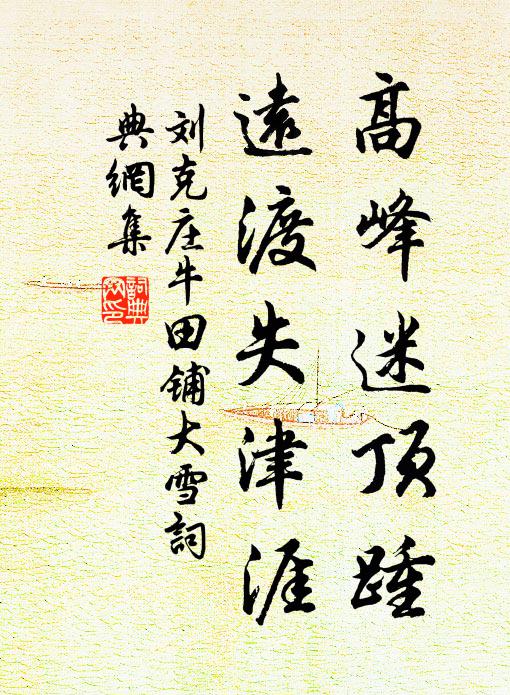 高峰迷顶踵
遠渡失津涯
刘克庄牛田铺大雪詞
典網集
詞典